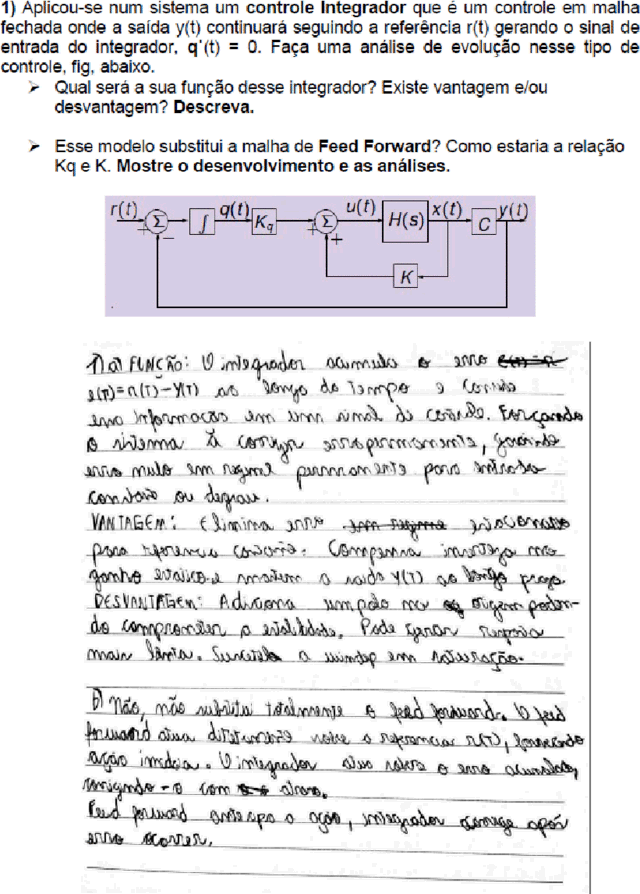 1) Aplicou-se num sistema um controle Integrador que é um controle em malha
fechada onde a saída y(t) continuará seguindo a referência r(t) gerando o sinal de
entrada do integrador, q˙(t) = 0. Faça uma análise de evolução nesse tipo de
controle, fig, abaixo.
➢ Qual será a sua função desse integrador? Existe vantagem e/ou
desvantagem? Descreva.
➢ Esse modelo substitui a malha de Feed Forward? Como estaria a relação
Kq e K. Mostre o desenvolvimento e as análises.
r(t) + Σ − ∫ q(t) Kq + Σ + u(t) H(s) x(t) C y(t)
K
1) a) FUNÇÃO: O integrador acumula o erro
e(T)=r(T)-Y(T) ao longo do Tempo e
essa informação em um sinal de controle. Forçando
o sistema a corrigir erro permanente,
erro nulo em regime permanente para entrada
constante ou degrau.
VANTAGEM: Elimina erro estacionário
para referencia constante. Compensa incerteza no
ganho estático e mantem a saida Y(T) ao longo prazo
DESVANTAGEM: Adiciona um polo na origem poden-
do comprometer a estabilidade. Pode gerar resposta
mais lenta. a windup em saturação.
b) Não, não substitui totalmente o feed forward. O feed
forward atua sobre a referencia r(T), fornecendo
ação imediata. O integrador atua sobre o erro acumulado,
corrigindo-o com atraso.
Feed forward antecipa a ação, integrador corrige após
erro ocorrer.